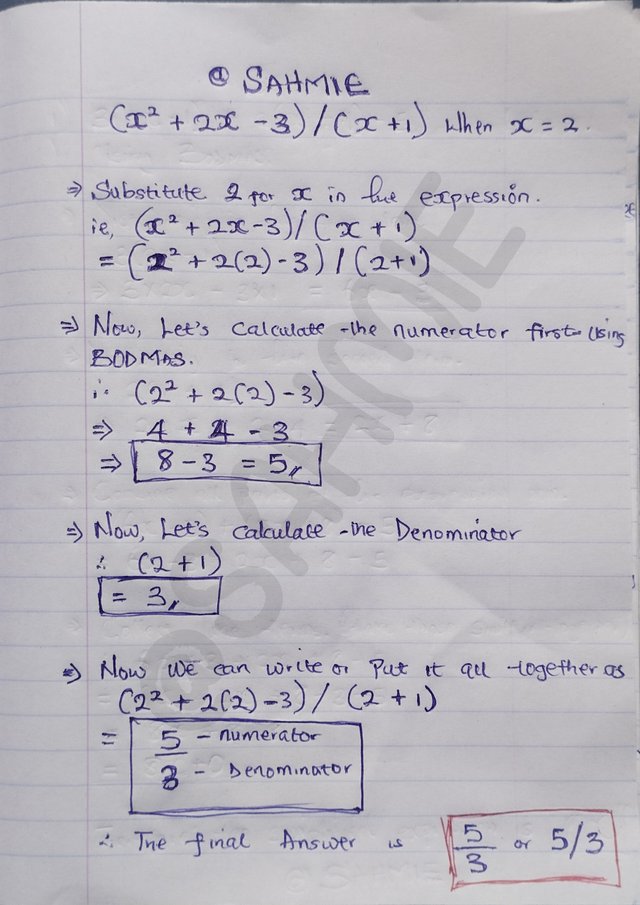 @ SAHMIE
(x² + 2x - 3) / (x + 1) when x = 2.
⇒ Substitute 2 for x in the expression.
ie, (x² + 2x - 3) / (x + 1)
= (2² + 2(2) - 3) / (2+1)
⇒ Now, Let's calculate the numerator first using
BODMAS.
∴ (2² + 2(2) - 3)
⇒ 4 + 4 - 3
⇒ 8 - 3 = 5,,
⇒ Now, Let's calculate the Denominator
∴ (2 + 1)
= 3,,
⇒ Now we can write or put it all together as
(2² + 2(2) - 3) / (2 + 1)
= 5 - numerator
3 - Denominator
∴ The final Answer is 5/3 or 5/3
@SAHMIE